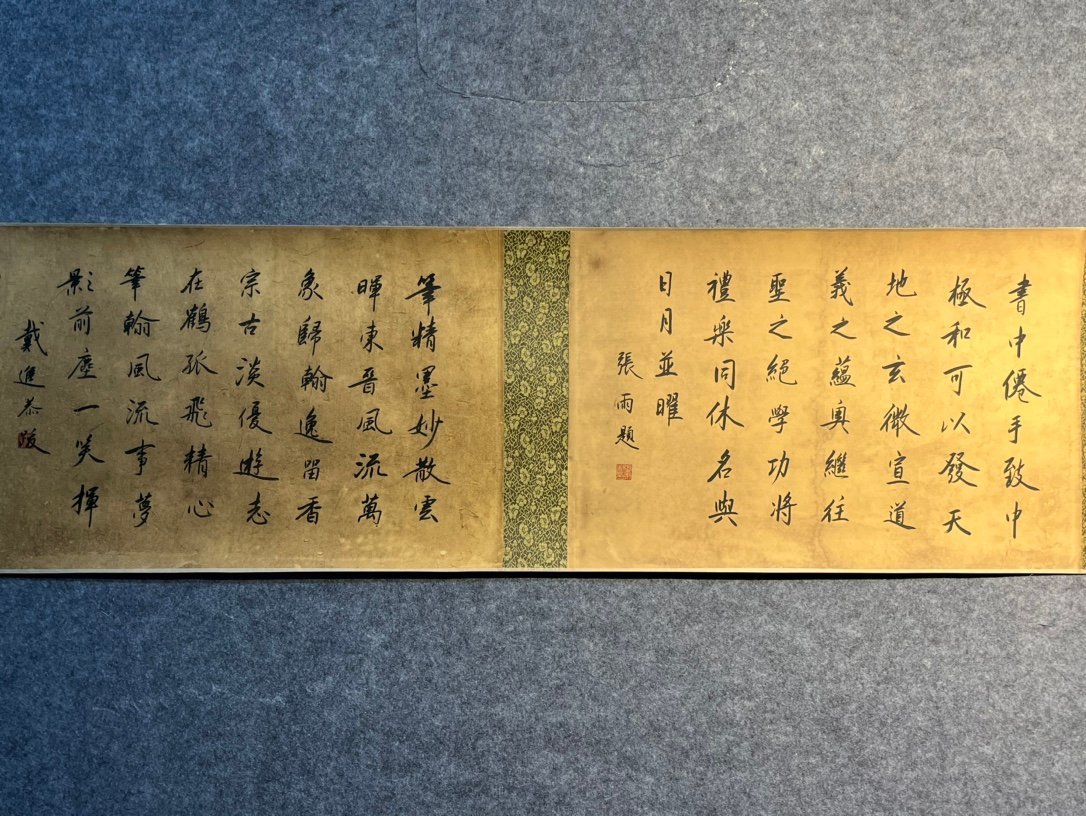 書中僊手致中
極和可以發天
地之玄微宣道
義之蘊奥繼往
聖之絕學功將
禮樂同休名與
日月並曜
張雨題
筆精墨妙散雲
暉東晉風流萬
象歸翰逸留香
宗古淡優遊志
在鶴孤飛精心
筆翰風流事夢
影前塵一笑揮
戴進恭跋